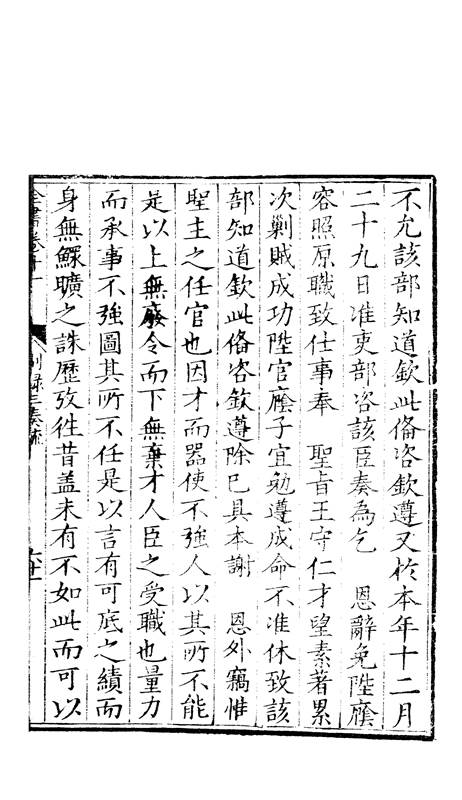 不允該部知道欽此俻咨欽遵又於本年十二月
二十九日准吏部咨該臣奏為乞　恩辭免陞廕
容照原職致仕事奉　聖旨王守仁才望素著累
次剿賊成功陞官廕子宜勉遵成命不准休致該
部知道欽此俻咨欽遵除已具本謝　恩外竊惟
聖主之任官也因才而器使不強人以其所不能
是以上無廢令而下無棄才人臣之受職也量力
而承事不強圖其所不任是以言有可底之績而
身無鰥曠之誅歷攷徃昔盖未有不如此而可以
全書卷十一
別録三奏疏